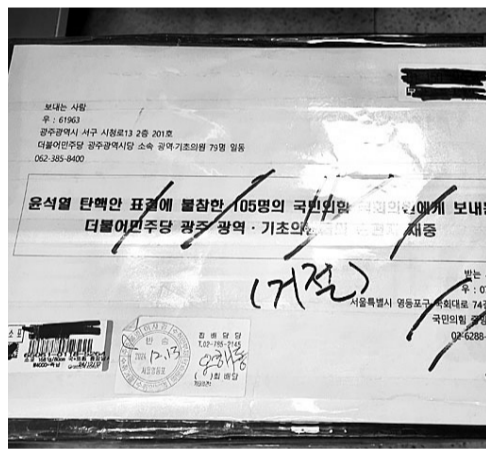 보내는 사람
우 : 61963
광주광역시 서구 시청로13 2층 201호
더불어민주당 광주광역시당 소속 광역·기초의원 79명 일동
062-385-8400
윤석열 탄핵안 표결에 불참한 105명의 국민의힘 국회의원에게 보내는
더불어민주당 광주 광역·기초의원 재중
(거절)
받는
우 : 07
서울특별시 영등포구 국회대로 74길
국민의힘 중앙
02-6288-
반송
2024. 12. 13
서울영등포
집배담당